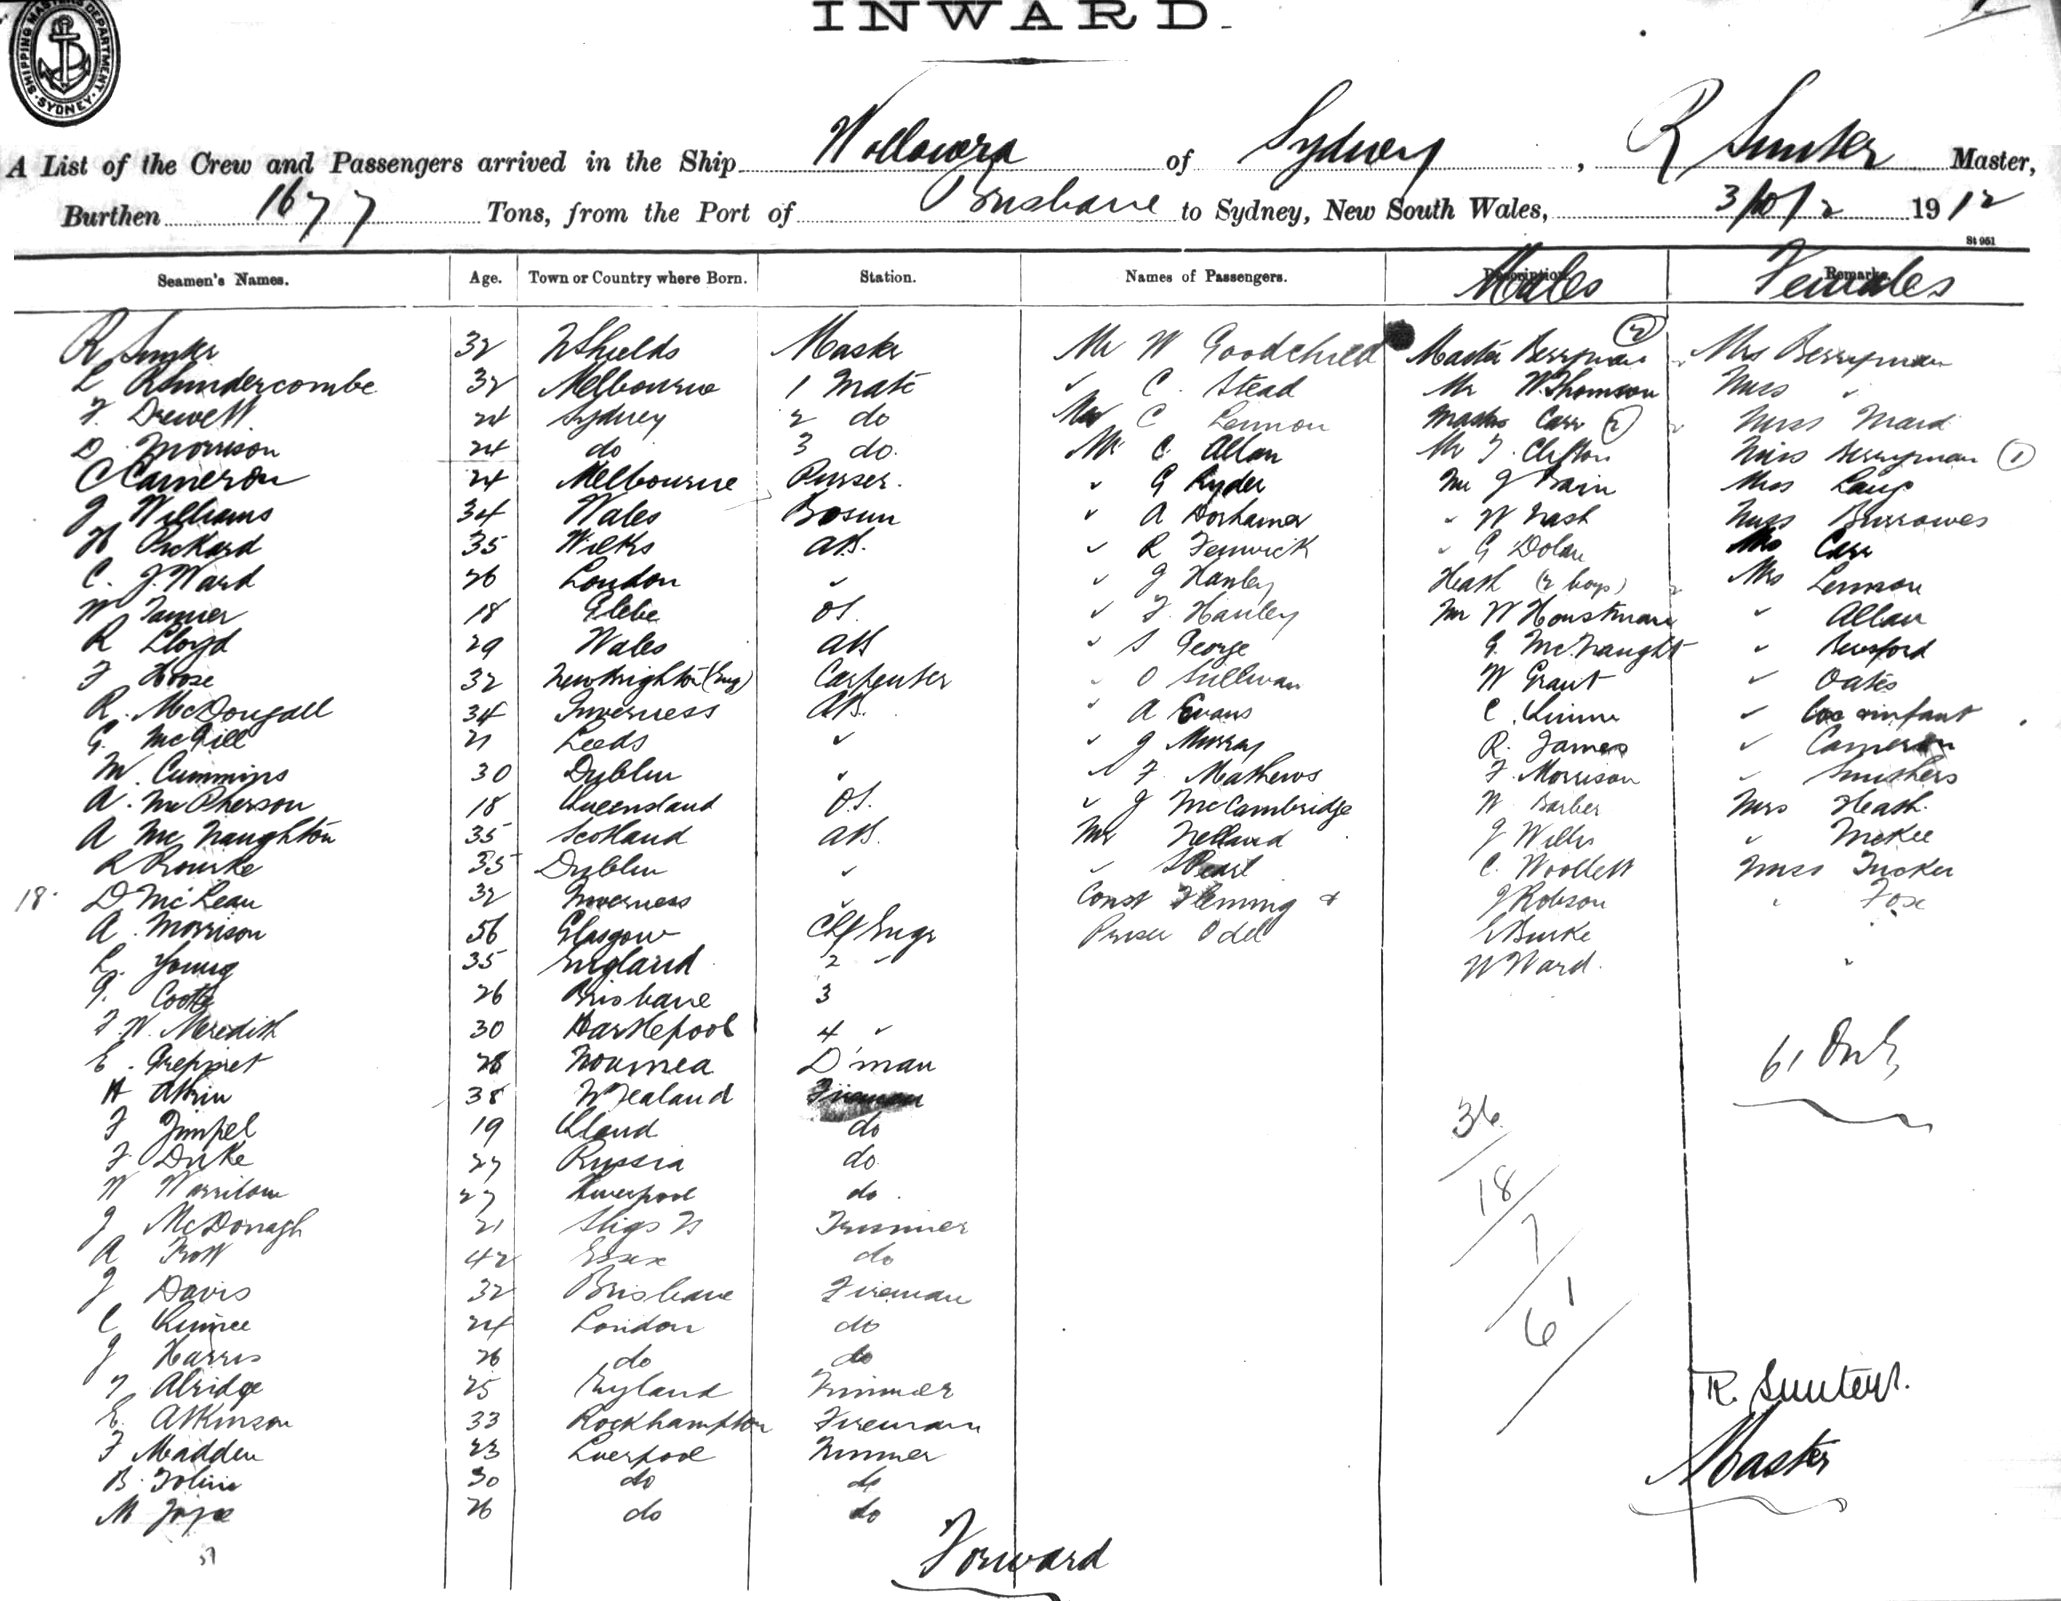 INWARD.
SHIPPING MASTERS DEPARTMENT SYDNEY
A List of the Crew and Passengers arrived in the Ship Wollowra of Sydney, R Sunter Master,
Burthen 1677 Tons, from the Port of Brisbane to Sydney, New South Wales, 3/10/12 1912
St 951
Seamen's Names. Age. Town or Country where Born. Station. Names of Passengers. Description. Males Remarks. Females
R Sunter 32 N Shields Master Mr W Goodchild Master Berryman (2) Mrs Berryman
L Rundercombe 32 Melbourne 1 Mate " C. Stead Mr W. Thomson Miss "
F. Drewett 24 Sydney 2 do C Lennon Master Carr (2) Miss Maid
D. Morrison 24 do 3 do. Mr C. Allan Mr T. Clifton Miss Berryman (1)
C Cameron 24 Melbourne Purser. " G Ryder Mr J Bain Miss Lang
J Williams 34 Wales Bosun " A Dorhamer " W Nash Miss Burrowes
H Pickard 35 Wilts AB. " R Fenwick " G Dolan Mrs Carr
C. J. Ward 26 London " " J Hanley Heath (2 boys) Mrs Lennon
W Tanner 18 Glebe OS. " F. Hanley Mr W Houstman " Allan
R Lloyd 29 Wales AB " S George G. McNaught " Beresford
F Hoose 32 New Brighton (Eng) Carpenter " O Sullivan W Grant " Oates
R. McDougall 34 Inverness AB. " A Evans C. Linne " Cox & infant
G. McGill 21 Leeds " " J Murray R. James " Cameron
M. Cummins 30 Dublin " " F. Mathews F. Morrison " Smithers
A. McPherson 18 Queensland O.S. " J McCambridge W Barber Mrs Heath.
A McNaughton 35 Scotland AB. Mr Nelland J Willis " McKee
R Rourke 35 Dublin " " S Pearl C. Woollett Miss Tucker
18. D McLean 32 Inverness " Const Fleming & J Robson " Fox
A. Morrison 56 Glasgow Chf Engr Odell E Burke "
L. Young 35 England 2 " W Ward. "
G. Coote 26 Brisbane 3
F. W. Meredith 30 Hartlepool 4 "
E. Greppret 28 Noumea D'man
H Atkin 38 N Zealand Fireman
F Gimpel 19 do
F. Duke 27 Russia do
W Warrilow 27 Liverpool do.
J McDonagh 21 Sligo Is Trimmer
A Trott 42 Essex do
J Davis 32 Brisbane Fireman
C Kinnee 24 London do
J Harris 26 do do
T. Alridge 25 England Trimmer
E. Atkinson 33 Rockhampton Fireman
F Madden 23 Liverpool Trimmer
B. Tolini 30 do do
M Joyce 26 do do
37
61 Only
36
18
7
61
R. Sunter.
Master
Forward